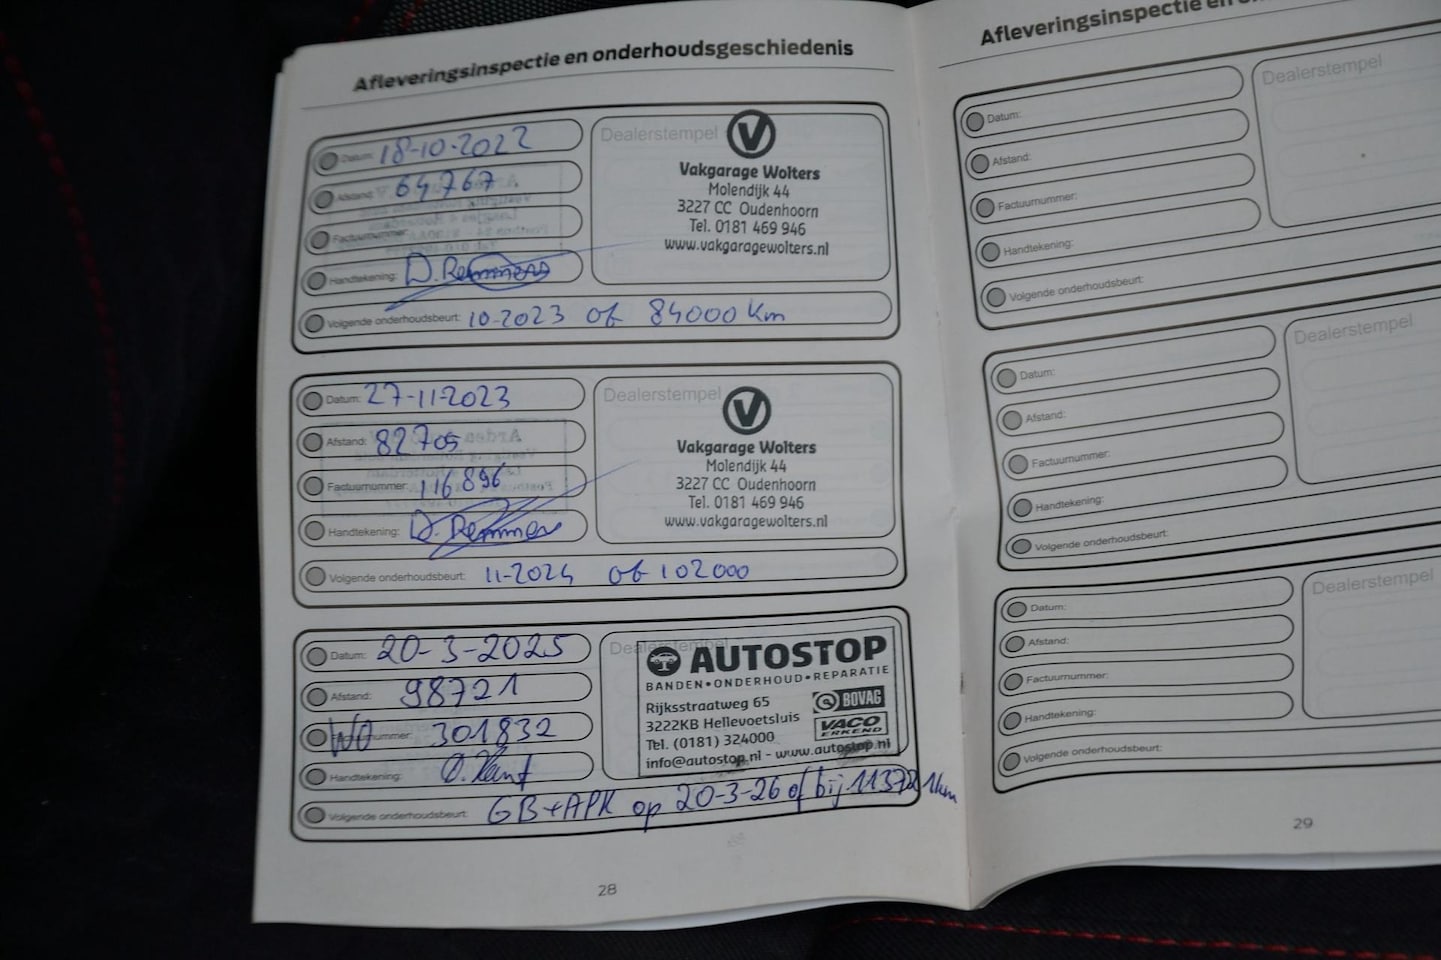 Afleveringsinspectie en onderhoudsgeschiedenis
Datum: 18-10-2022
Afstand: 64767
Factuurnummer:
Handtekening: D. Remmers
Volgende onderhoudsbeurt: 10-2023 of 84000 km
Dealerstempel
Vakgarage Wolters
Molendijk 44
3227 CC Oudenhoorn
Tel. 0181 469 946
www.vakgaragewolters.nl
Datum: 27-11-2023
Afstand: 82705
Factuurnummer: 116896
Handtekening: D. Remmers
Volgende onderhoudsbeurt: 11-2024 of 102000
Dealerstempel
Vakgarage Wolters
Molendijk 44
3227 CC Oudenhoorn
Tel. 0181 469 946
www.vakgaragewolters.nl
Datum: 20-3-2025
Afstand: 98721
WO nummer: 301832
Handtekening:
Volgende onderhoudsbeurt: GB+APK op 20-3-26 of bij 113721km
Dealerstempel
AUTOSTOP
BANDEN•ONDERHOUD•REPARATIE
Rijksstraatweg 65
3222KB Hellevoetsluis
Tel. (0181) 324000
info@autostop.nl - www.autostop.nl
BOVAG
VACO
ERKEND
28
Afleveringsinspectie en
Datum:
Afstand:
Factuurnummer:
Handtekening:
Volgende onderhoudsbeurt:
Dealerstempel
Datum:
Afstand:
Factuurnummer:
Handtekening:
Volgende onderhoudsbeurt:
Dealerstempel
Datum:
Afstand:
Factuurnummer:
Handtekening:
Volgende onderhoudsbeurt:
Dealerstempel
29